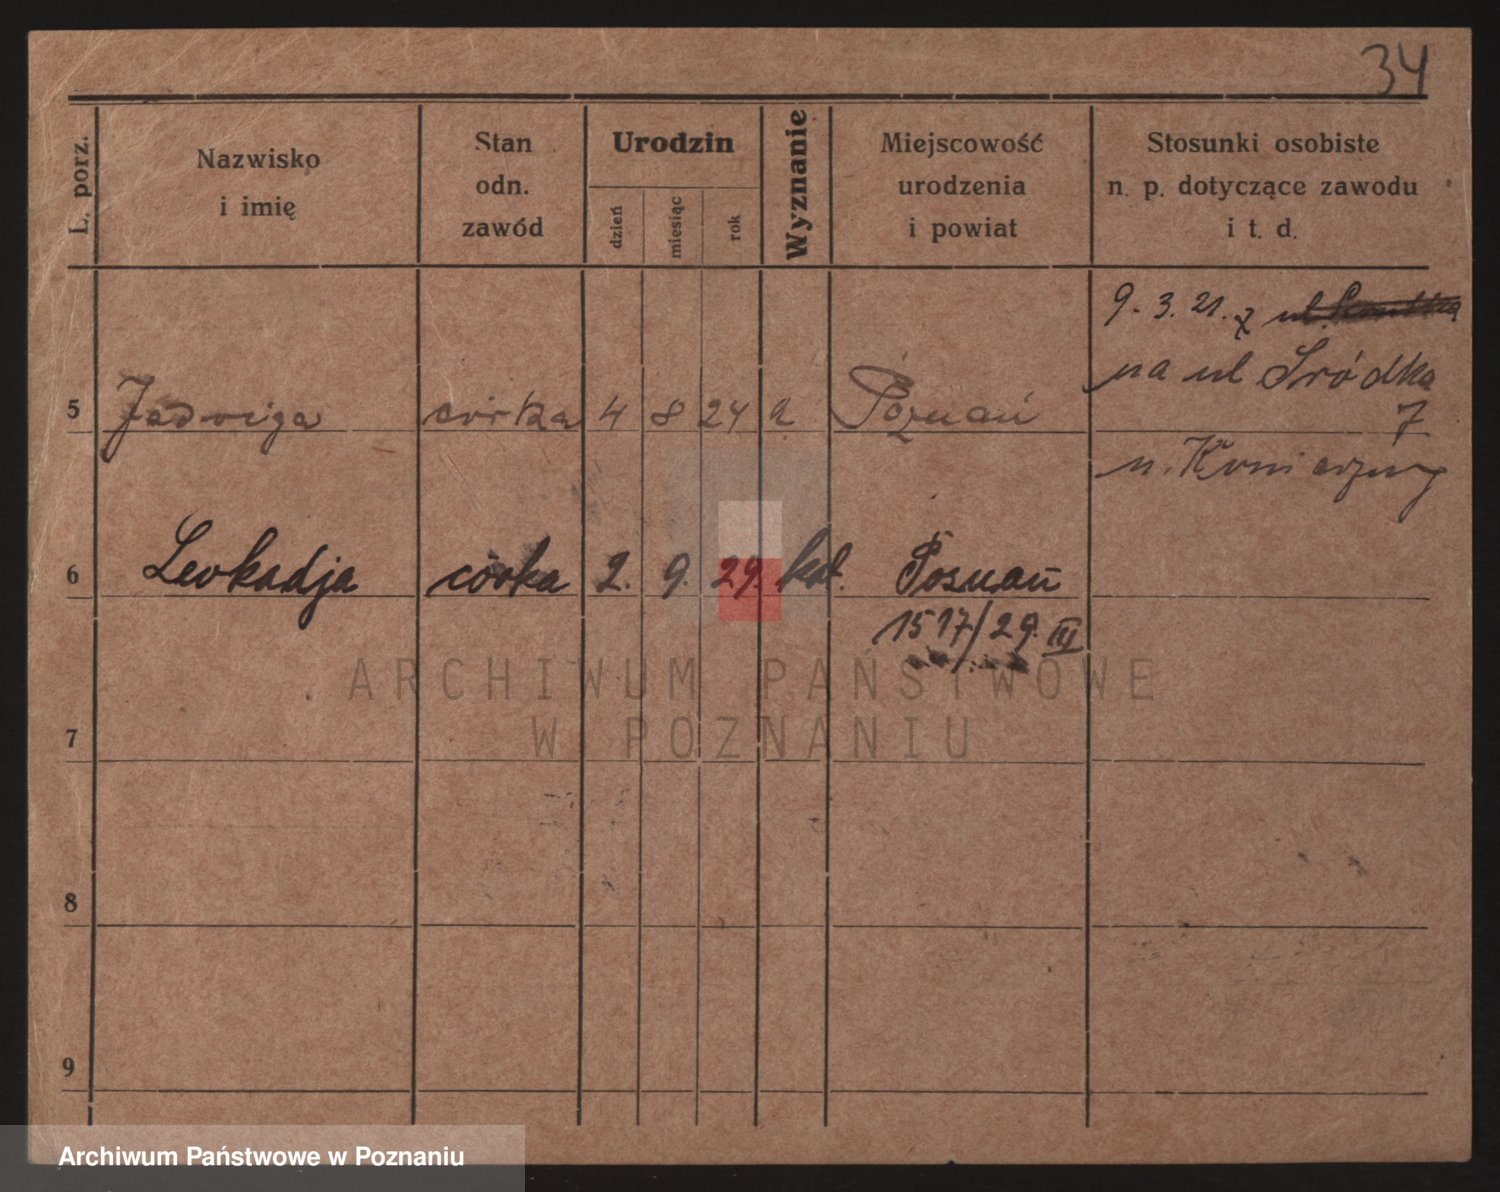 34
L. porz.
Nazwisko
i imię
Stan
odn.
zawód
Urodzin
dzień
miesiąc
rok
Wyznanie
Miejscowość
urodzenia
i powiat
Stosunki osobiste
n. p. dotyczące zawodu
i t. d.
9. 3. 21. z ul.
na ul Śródka
7
5 Jadwiga córka 4 8 24 Poznań
n.
6 Leokadja córka 2. 9. 29. kat. Poznań
1517/29. III
7
8
9
ARCHIWUM PAŃSTWOWE
W POZNANIU
Archiwum Państwowe w Poznaniu